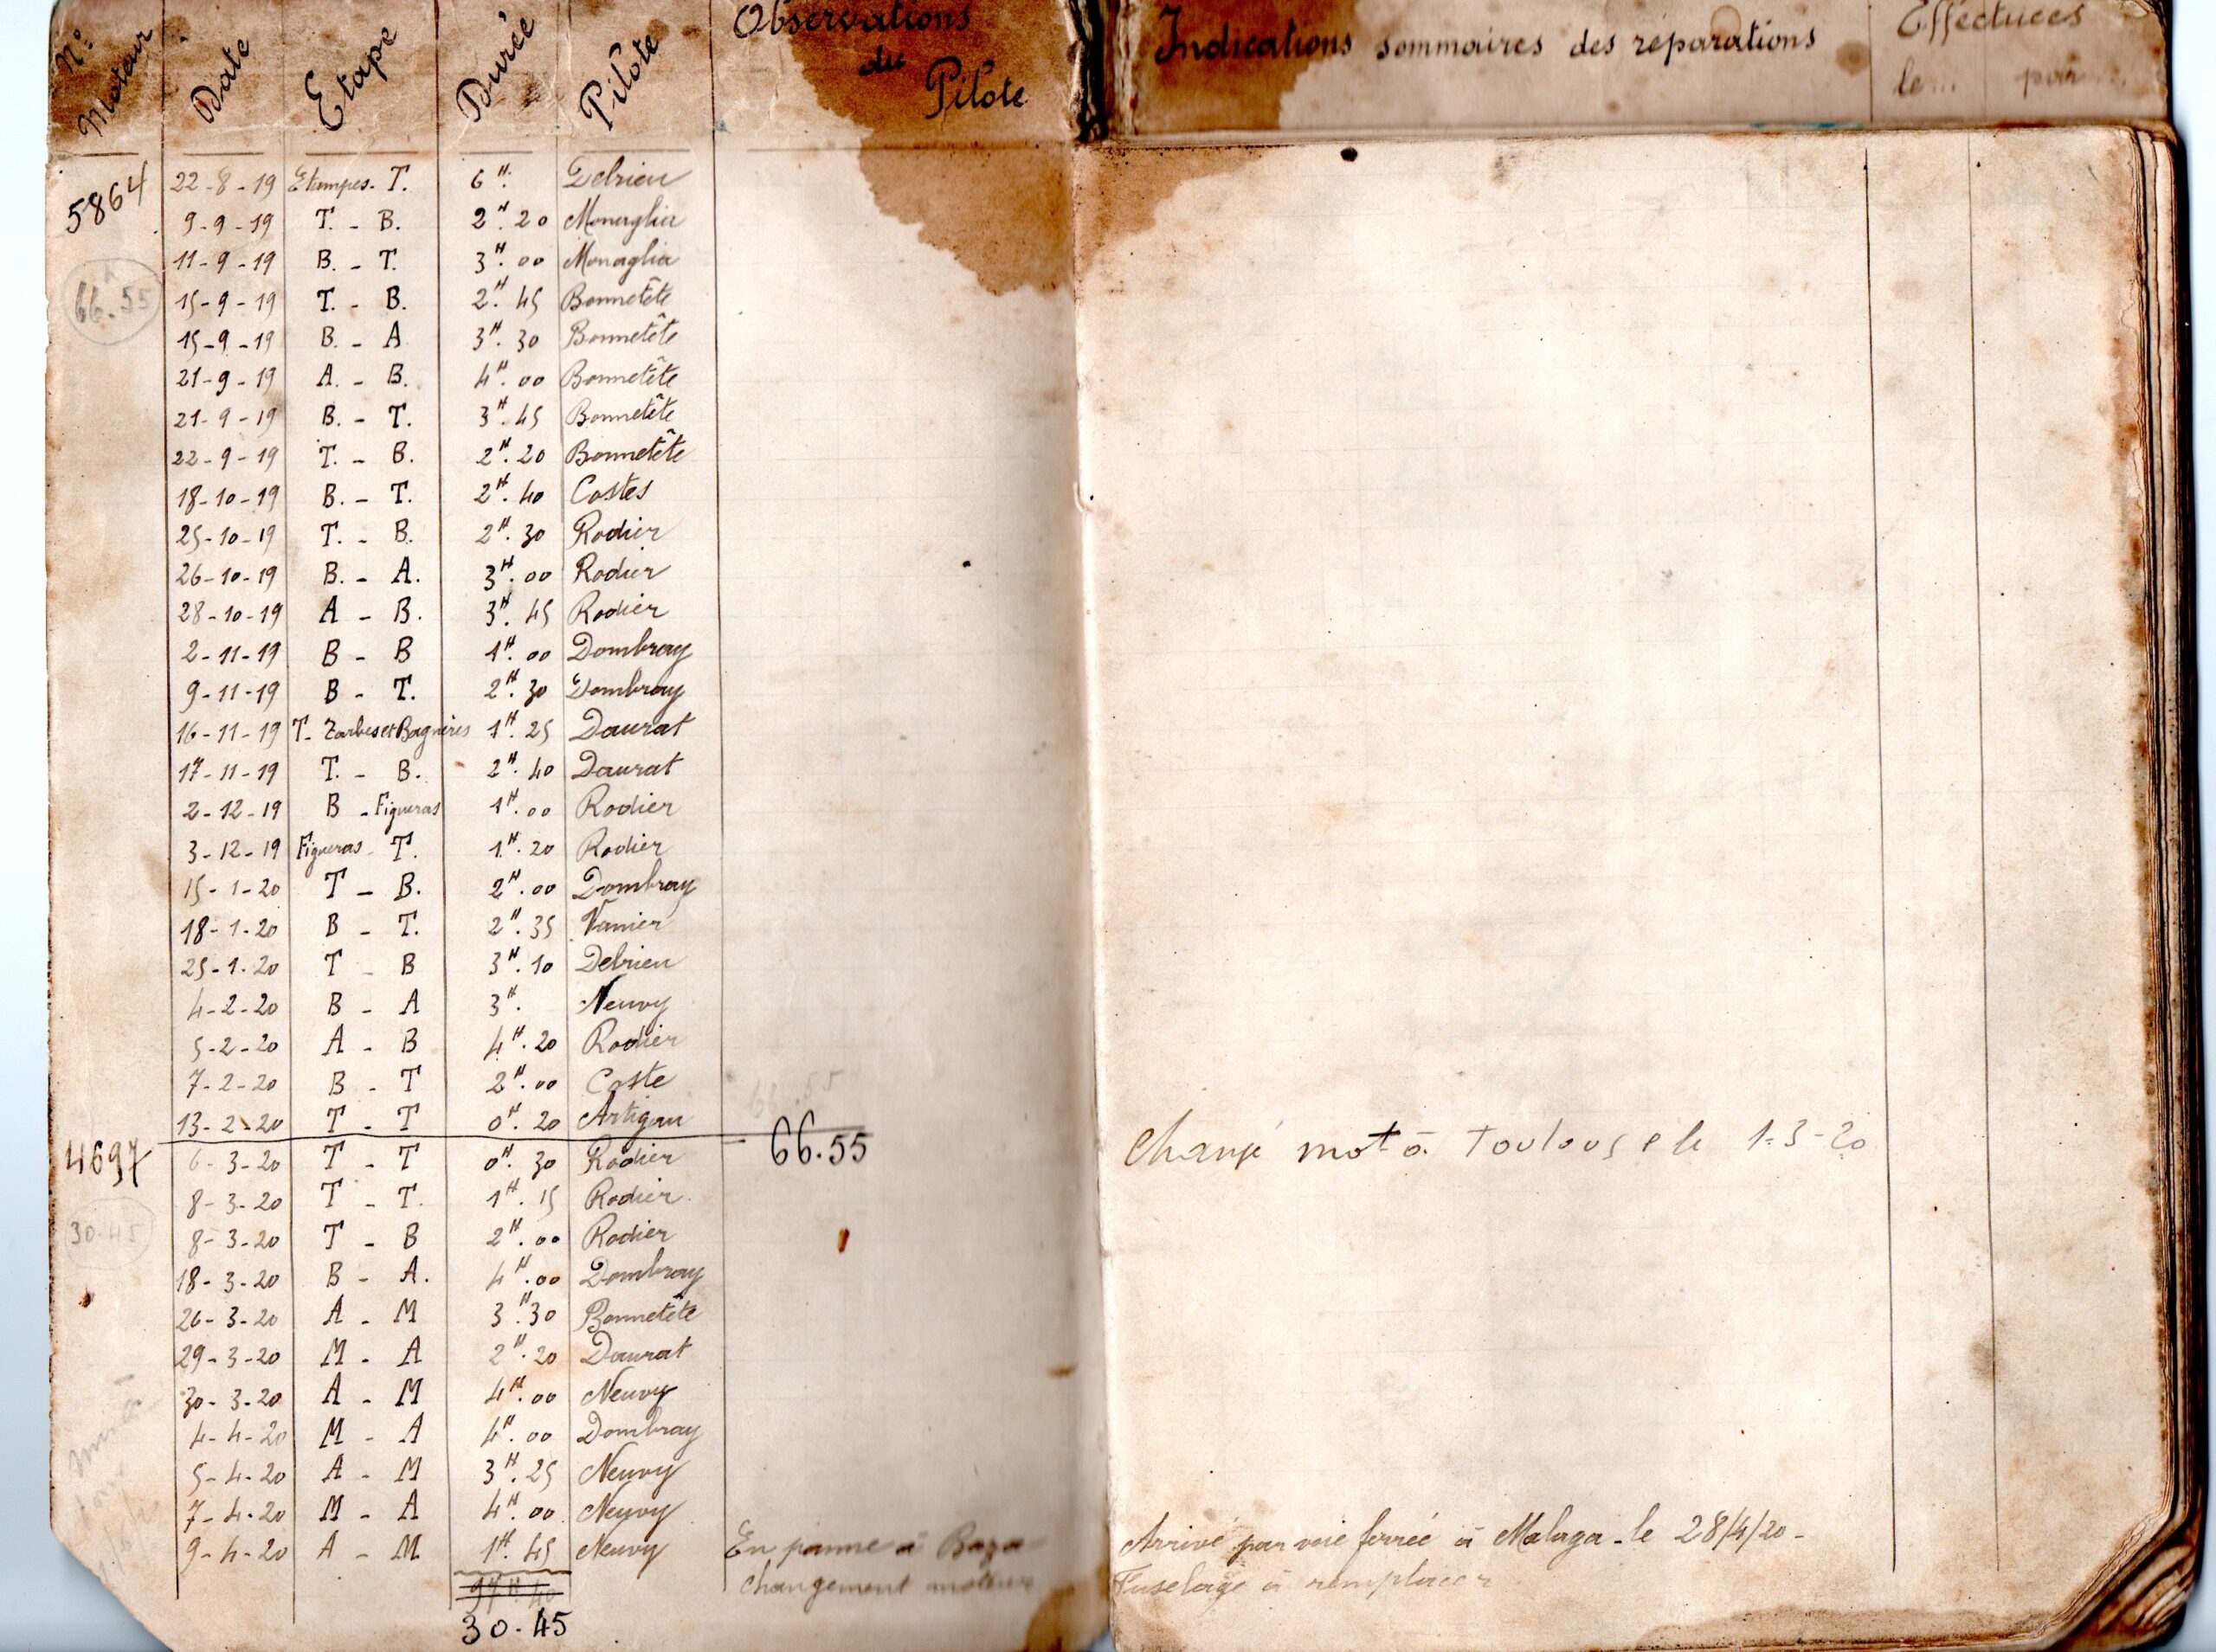 N° Moteur Date Etape Durée Pilote Observations du Pilote Indications sommaires des réparations Effectuées le... par...
5864 22-8-19 Etampes-T. 6H. Delrieu
9-9-19 T. - B. 2H.20 Monaglia
11-9-19 B. - T. 3H.00 Monaglia
66H.55 15-9-19 T. - B. 2H.45 Bonnetête
15-9-19 B. - A 3H.30 Bonnetête
21-9-19 A. - B. 4H.00 Bonnetête
21-9-19 B. - T. 3H.45 Bonnetête
22-9-19 T. - B. 2H.20 Bonnetête
18-10-19 B. - T. 2H.40 Costes
25-10-19 T. - B. 2H.30 Rodier
26-10-19 B. - A. 3H.00 Rodier
28-10-19 A - B. 3H.45 Rodier
2-11-19 B - B 1H.00 Dombray
9-11-19 B - T. 2H.30 Dombray
16-11-19 T- Tarbes et Bagnères 1H.25 Daurat
17-11-19 T. - B. 2H.40 Daurat
2-12-19 B - Figueras 1H.00 Rodier
3-12-19 Figueras - T. 1H.20 Rodier
15-1-20 T - B. 2H.00 Dombray
18-1-20 B - T. 2H.35 Vanier
25-1-20 T - B 3H.10 Delrieu
4-2-20 B - A 3H. Neuvy
5-2-20 A - B 4H.20 Rodier
7-2-20 B - T 2H.00 Coste 66.55
13-2-20 T - T 0H.20 Artigau
4697 6-3-20 T - T 0H.30 Rodier 66.55 Changé mot à Toulouse le 1-3-20
8-3-20 T - T. 1H.15 Rodier.
30.45 8-3-20 T - B 2H.00 Rodier
18-3-20 B - A. 4H.00 Dombray
26-3-20 A - M 3H.30 Bonnetête
29-3-20 M - A 2H.20 Daurat
30-3-20 A - M 4H.00 Neuvy
4-4-20 M - A 4H.00 Dombray
5-4-20 A - M 3H.25 Neuvy
7-4-20 M - A 4H.00 Neuvy
9-4-20 A - M 1H.45 Neuvy En panne à Baza - Arrivé par voie ferrée à Malaga - le 28/4/20 -
97H.40 changement moteur Fuselage à remplacer
30-45